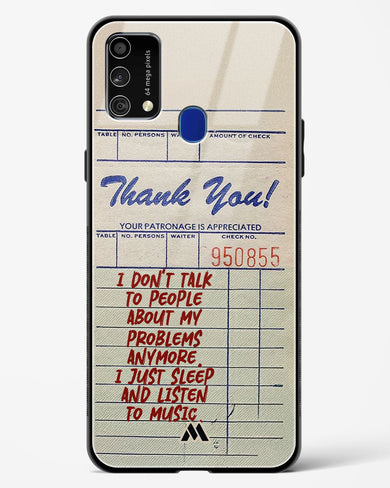 64 mega pixels
TABLE NO. PERSONS WA AMOUNT OF CHECK
Thank You!
YOUR PATRONAGE IS APPRECIATED
TABLE NO. PERSONS WAITER CHECK NO.
950855
I DON'T TALK
TO PEOPLE
ABOUT MY
PROBLEMS
ANYMORE.
I JUST SLEEP
AND LISTEN
TO MUSIC.